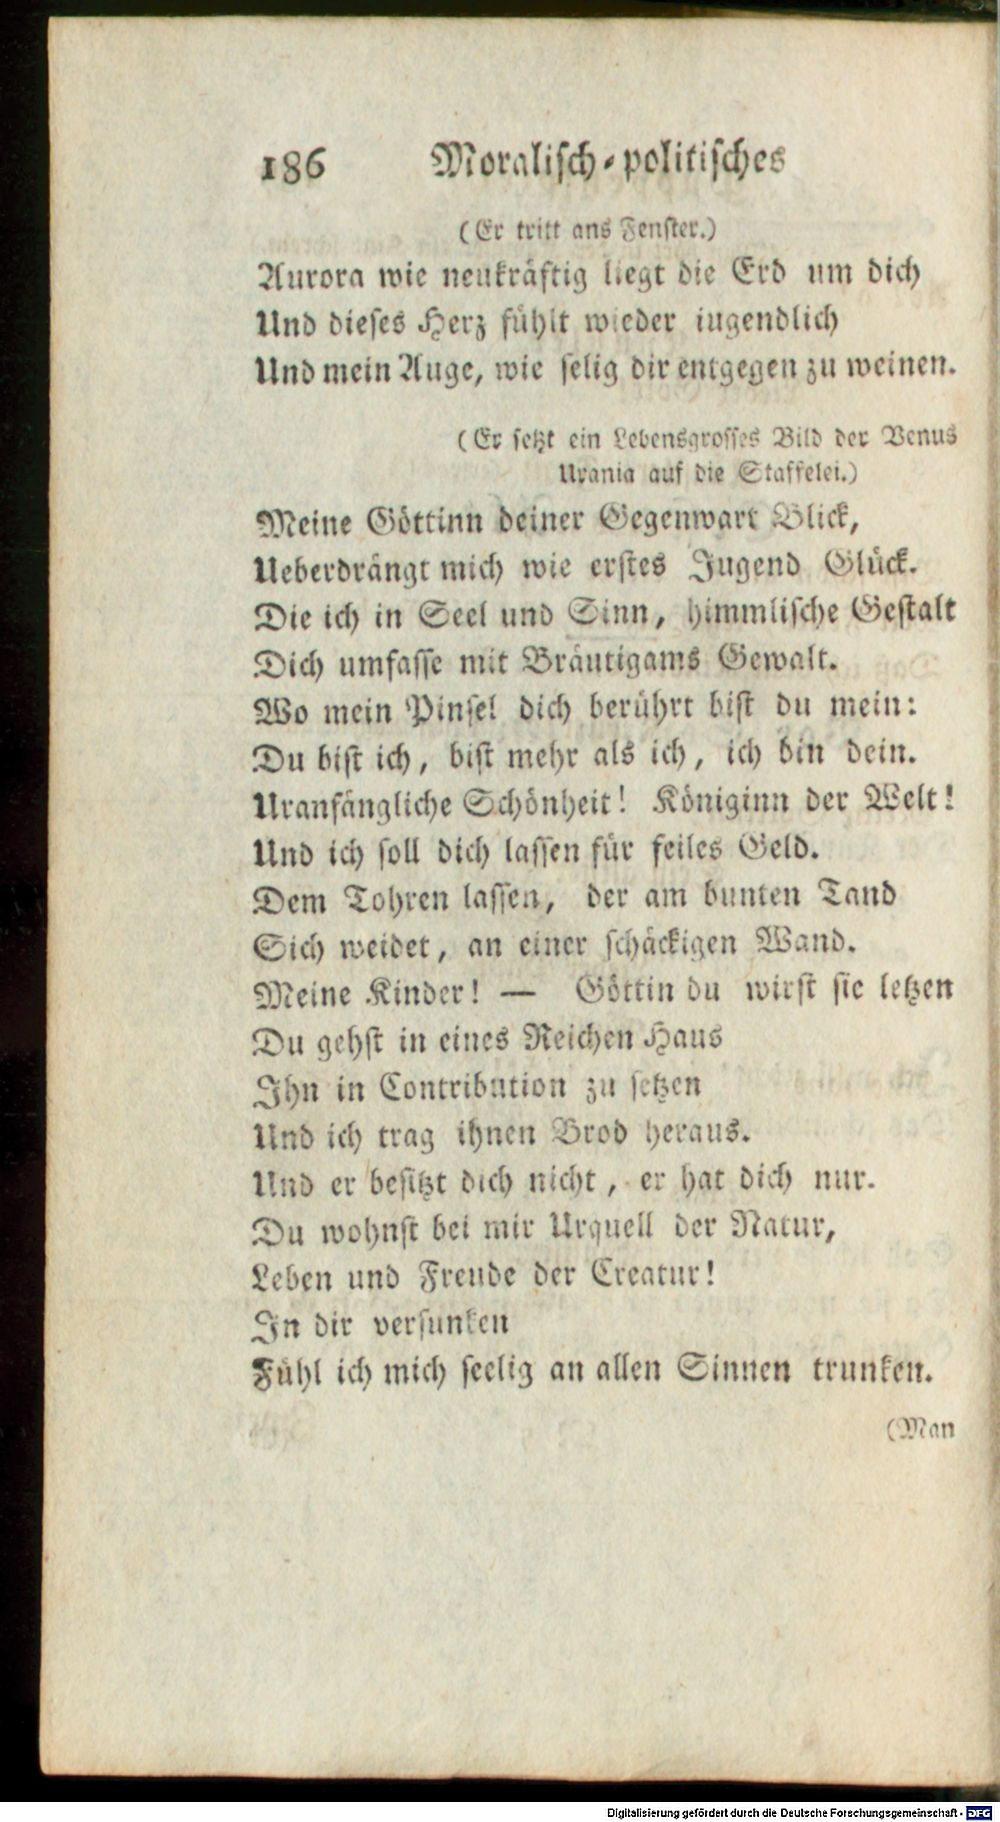 186 Moralisch-politisches
(Er tritt ans Fenster.)
Aurora wie neukräftig liegt die Erd um dich
Und dieses Herz fühlt wieder iugendlich
Und mein Auge, wie selig dir entgegen zu weinen.
(Er setzt ein Lebensgrosses Bild der Venus
Urania auf die Staffelei.)
Meine Göttinn deiner Gegenwart Blick,
Ueberdrängt mich wie erstes Jugend Glück.
Die ich in Seel und Sinn, himmlische Gestalt
Dich umfasse mit Bräutigams Gewalt.
Wo mein Pinsel dich berührt bist du mein:
Du bist ich, bist mehr als ich, ich bin dein.
Uranfängliche Schönheit! Königinn der Welt!
Und ich soll dich lassen für feiles Geld.
Dem Tohren lassen, der am bunten Tand
Sich weidet, an einer schäckigen Wand.
Meine Kinder! — Göttin du wirst sie letzen
Du gehst in eines Reichen Haus
Ihn in Contribution zu setzen
Und ich trag ihnen Brod heraus.
Und er besitzt dich nicht, er hat dich nur.
Du wohnst bei mir Urquell der Natur,
Leben und Freude der Creatur!
In dir versunken
Fühl ich mich seelig an allen Sinnen trunken.
(Man
Digitalisierung gefördert durch die Deutsche Forschungsgemeinschaft - DFG